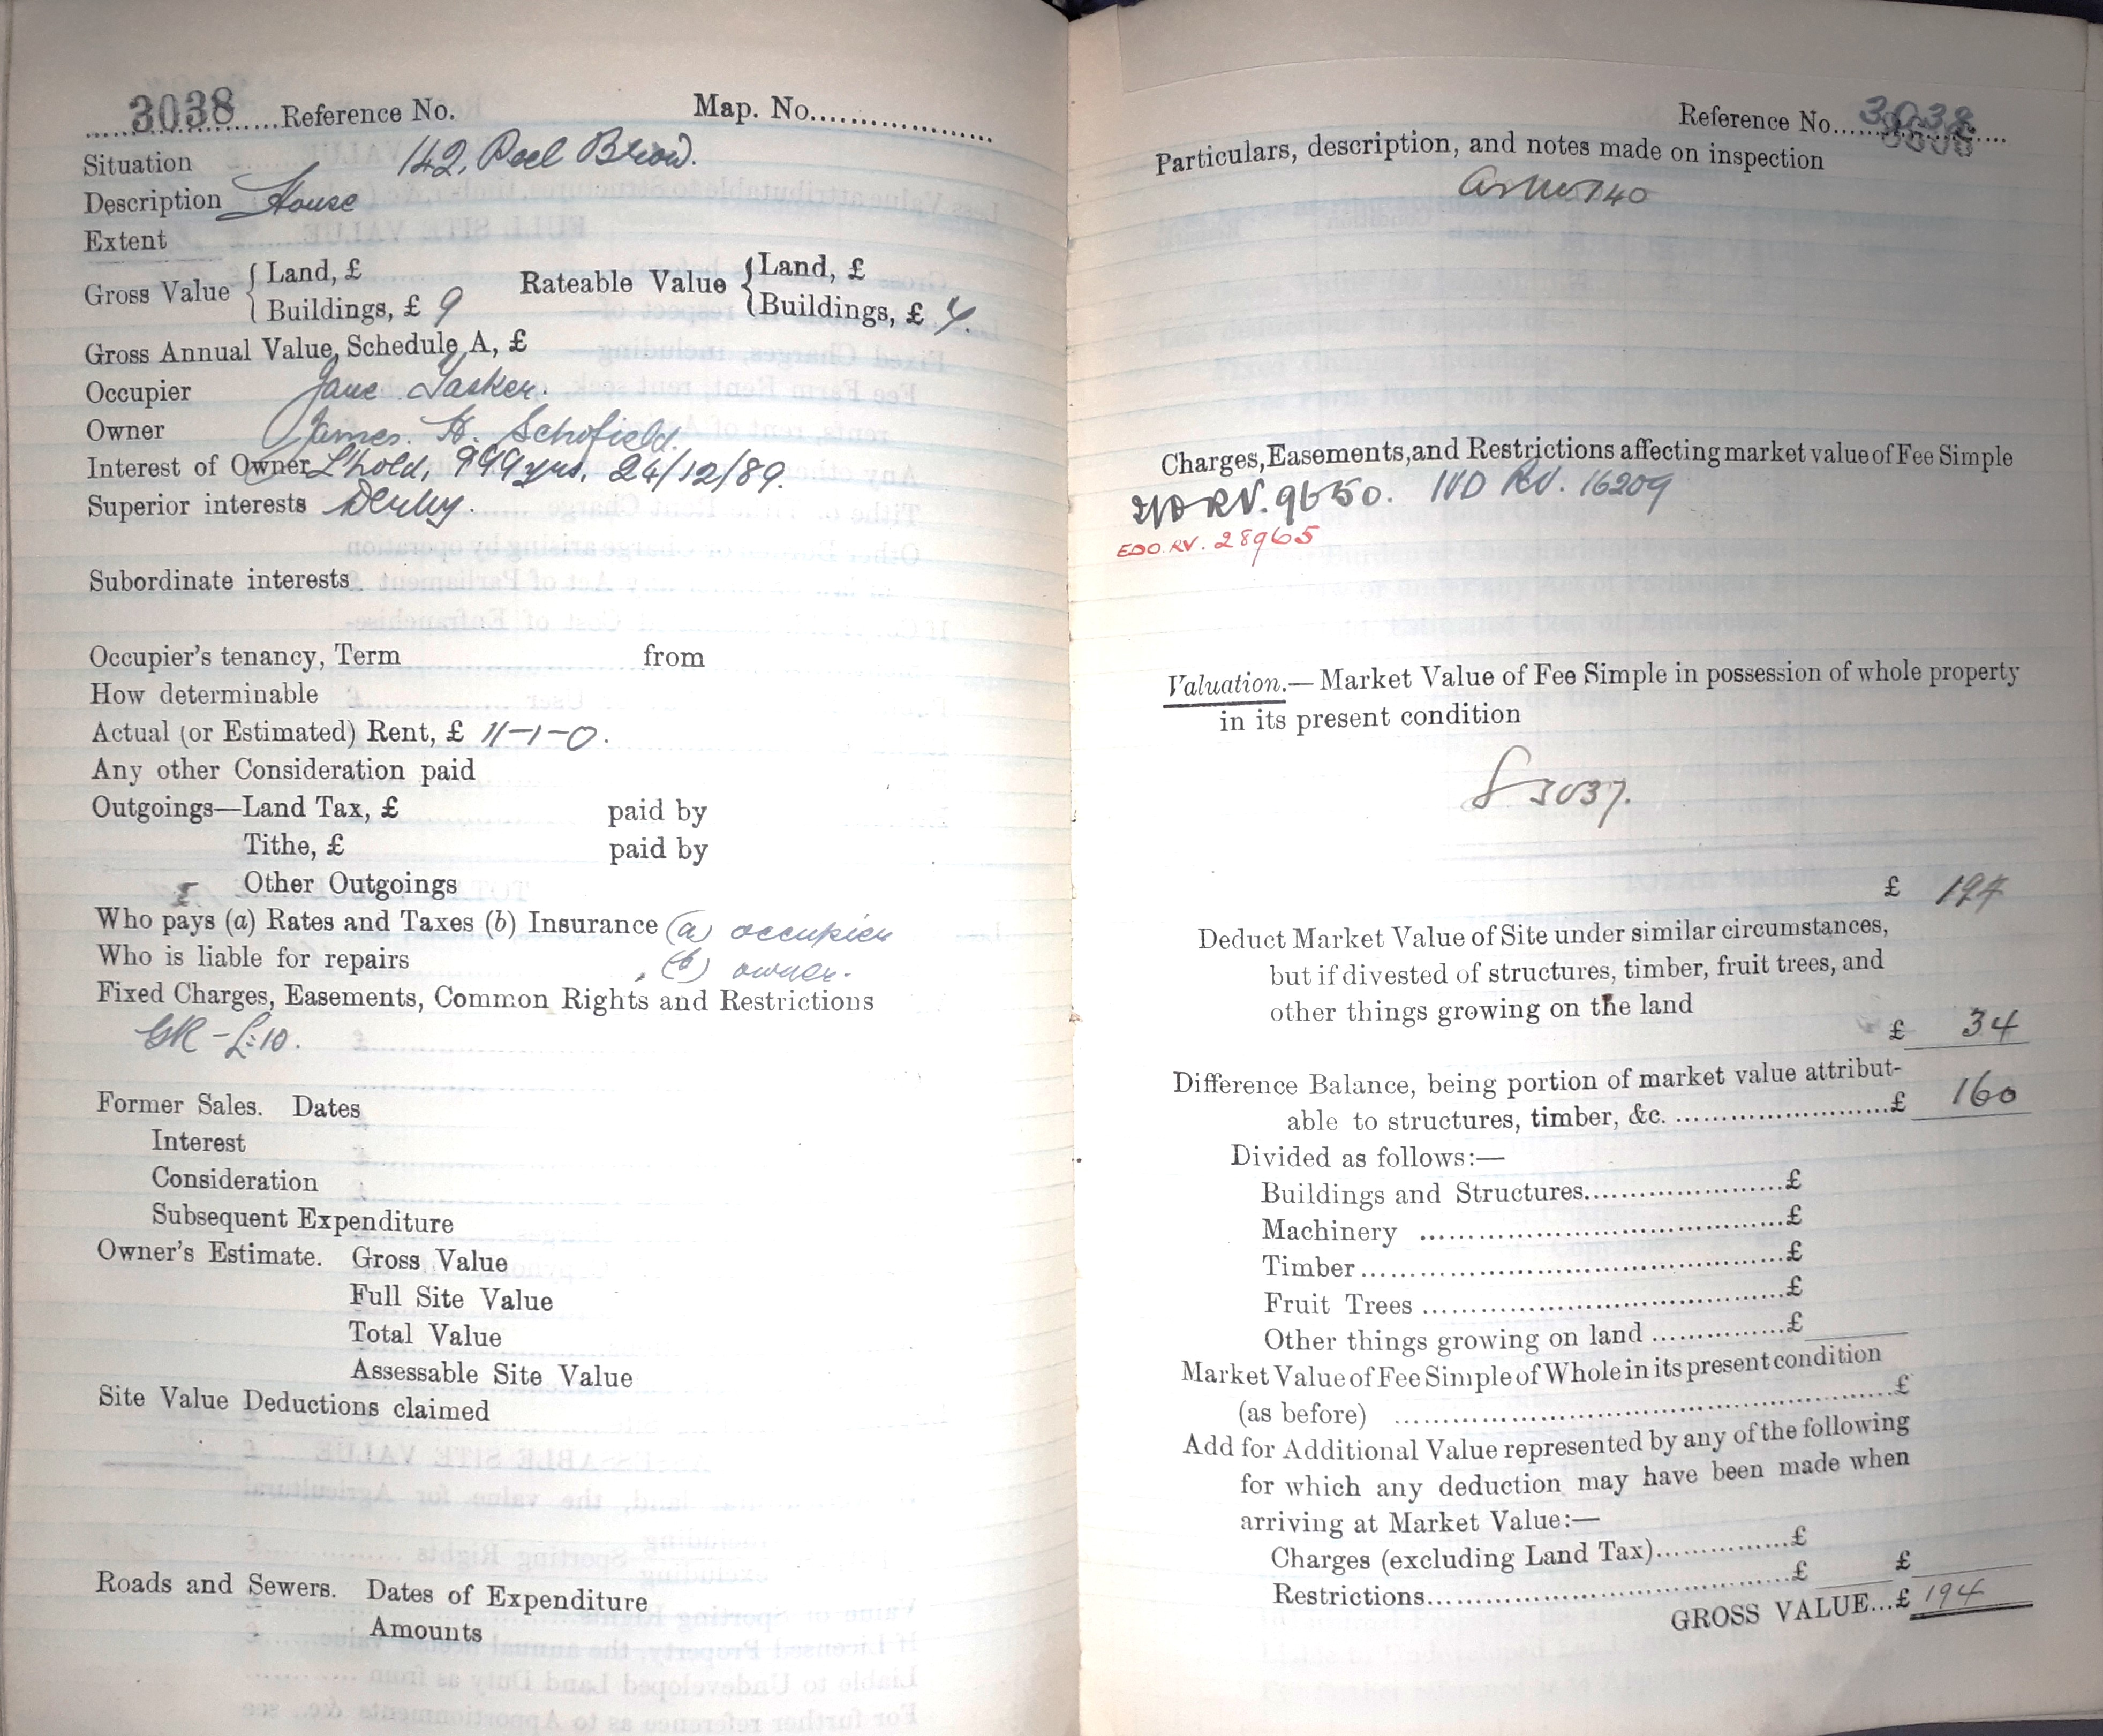 3038 Reference No. Map. No.
Situation 142, Peel Brow.
Description House
Extent
Gross Value { Land, £
Buildings, £ 9
Rateable Value { Land, £
Buildings, £ 4.
Gross Annual Value, Schedule A, £
Occupier Jane Tasker.
Owner James. H. Schofield.
Interest of Owner L'hold, 999 yrs. 24/12/89.
Superior interests Derby.
Subordinate interests
Occupier's tenancy, Term from
How determinable
Actual (or Estimated) Rent, £ 11-1-0.
Any other Consideration paid
Outgoings—Land Tax, £ paid by
Tithe, £ paid by
Other Outgoings
Who pays (a) Rates and Taxes (b) Insurance (a) occupier
Who is liable for repairs (b) owner.
Fixed Charges, Easements, Common Rights and Restrictions
GR - £:10.
Former Sales. Dates
Interest
Consideration
Subsequent Expenditure
Owner's Estimate. Gross Value
Full Site Value
Total Value
Assessable Site Value
Site Value Deductions claimed
Roads and Sewers. Dates of Expenditure
Amounts
Reference No. 3038
Particulars, description, and notes made on inspection
as No 140
Charges, Easements, and Restrictions affecting market value of Fee Simple
RV. 9650. IVD RV. 16209
EDO. RV. 28965
Valuation.—Market Value of Fee Simple in possession of whole property
in its present condition
3037.
£ 194
Deduct Market Value of Site under similar circumstances,
but if divested of structures, timber, fruit trees, and
other things growing on the land
£ 34
Difference Balance, being portion of market value attribut-
able to structures, timber, &c. £ 160
Divided as follows:—
Buildings and Structures £
Machinery £
Timber £
Fruit Trees £
Other things growing on land £
Market Value of Fee Simple of Whole in its present condition
(as before) £
Add for Additional Value represented by any of the following
for which any deduction may have been made when
arriving at Market Value:—
Charges (excluding Land Tax) £
Restrictions £ £
GROSS VALUE...£ 194